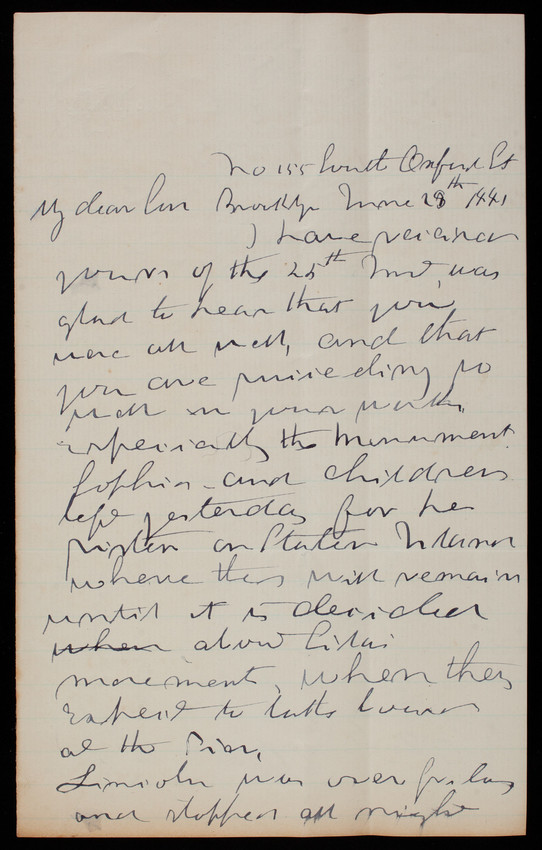 No 155 South Oxford St
My dear Son Brooklyn June 28th 1881
I have received
yours of the 25th Inst, was
glad to hear that you
were all well, and that
you are proceeding so
well in your work,
especially the Monument.
Sophia and children
left yesterday for her
sister on Staten Island
where they will remain
until it is decided
when about
movements, when they
expect to take
at the Pier,
Lincoln was over friday
and stopped all night